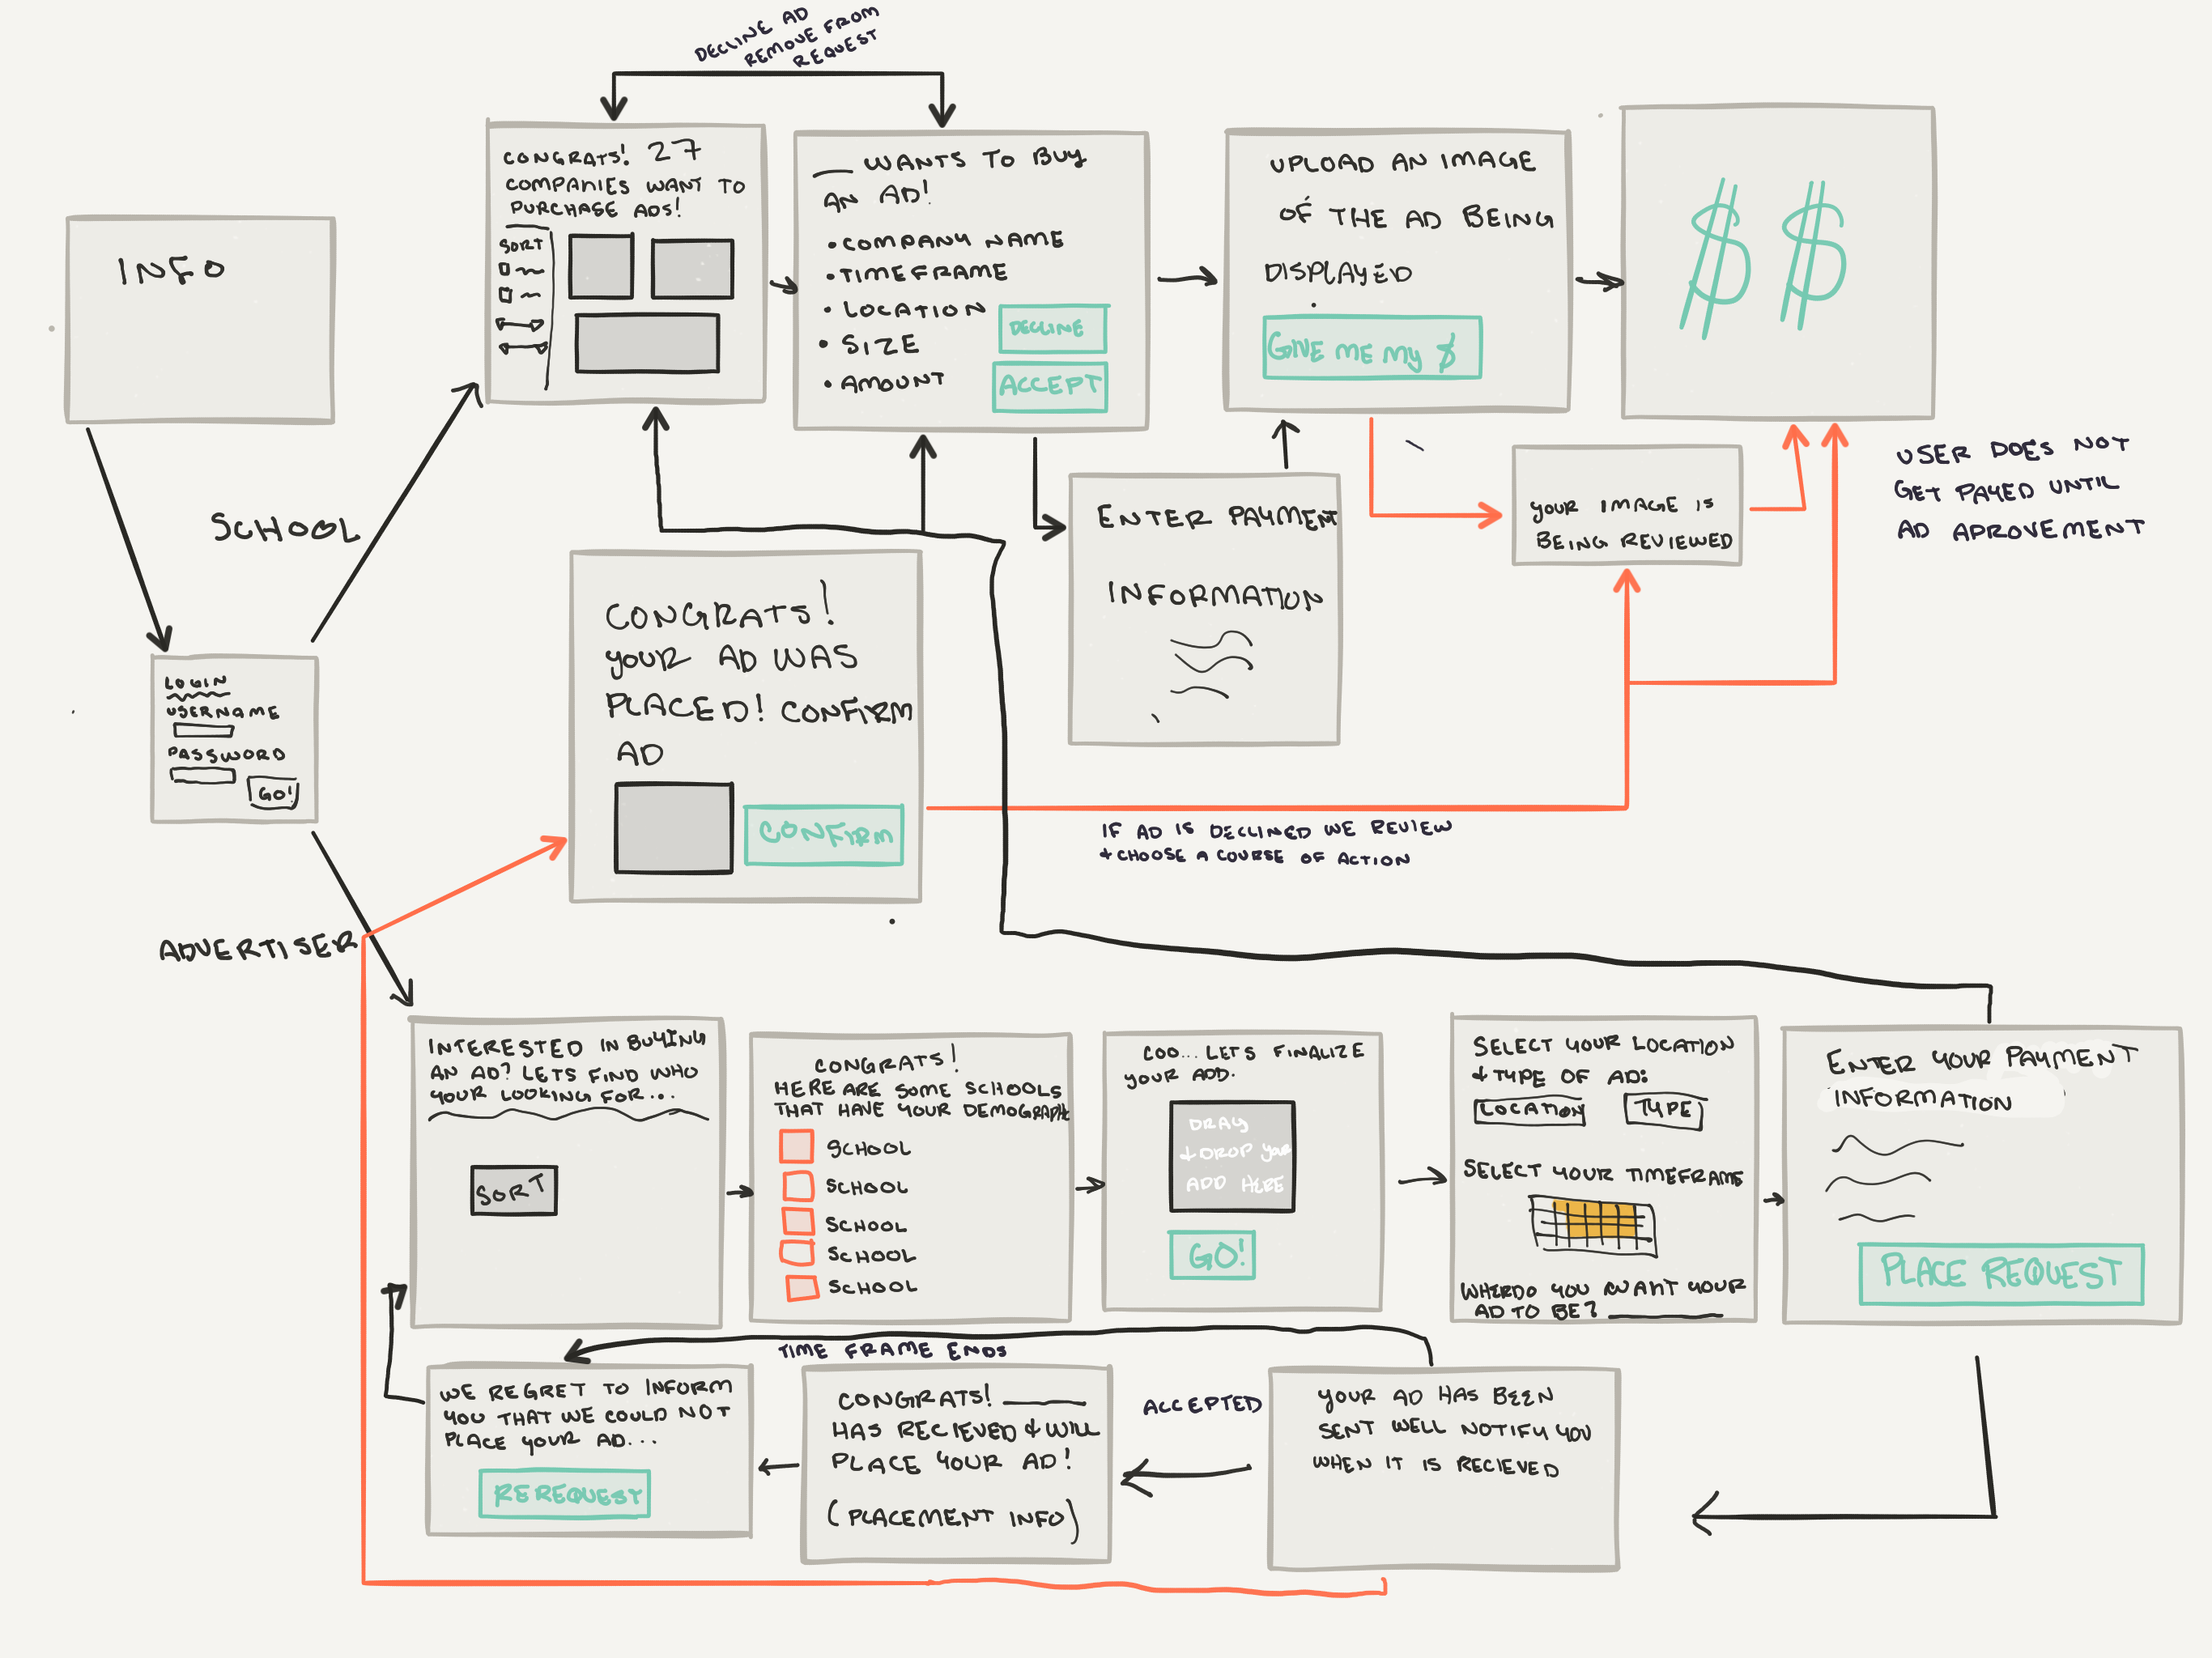 DECLINE AD
REMOVE FROM
REQUEST
INFO
CONGRATS! 27
COMPANIES WANT TO
PURCHASE ADS!
SORT
___ WANTS TO BUY
AN AD!
• COMPANY NAME
• TIMEFRAME
• LOCATION
• SIZE
• AMOUNT
DECLINE
ACCEPT
UPLOAD AN IMAGE
OF THE AD BEING
DISPLAYED
GIVE ME MY $
$ $
SCHOOL
USER DOES NOT
GET PAYED UNTIL
AD APROVEMENT
YOUR IMAGE IS
BEING REVIEWED
ENTER PAYMENT
INFORMATION
CONGRATS!
YOUR AD WAS
PLACED! CONFIRM
AD
CONFIRM
LOGIN
USERNAME
PASSWORD
GO!
IF AD IS DECLINED WE REVIEW
+ CHOOSE A COURSE OF ACTION
ADVERTISER
INTERESTED IN BUYING
AN AD? LETS FIND WHO
YOUR LOOKING FOR...
SORT
CONGRATS!
HERE ARE SOME SCHOOLS
THAT HAVE YOUR DEMOGRAPH
SCHOOL
SCHOOL
SCHOOL
SCHOOL
SCHOOL
COO... LETS FINALIZE
YOUR ADD.
DRAY
+ DROP YOUR
ADD HERE
GO!
SELECT YOUR LOCATION
+ TYPE OF AD:
LOCATION
TYPE
SELECT YOUR TIMEFRAME
WHERDO YOU WANT YOUR
AD TO BE? ___
ENTER YOUR PAYMENT
INFORMATION
PLACE REQUEST
TIME FRAME ENDS
WE REGRET TO INFORM
YOU THAT WE COULD NOT
PLACE YOUR AD...
REREQUEST
CONGRATS! ___
HAS RECIEVED + WILL
PLACE YOUR AD!
(PLACEMENT INFO)
ACCEPTED
YOUR AD HAS BEEN
SENT WELL NOTIFY YOU
WHEN IT IS RECIEVED